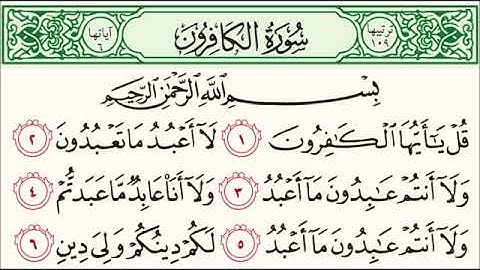 ترتيبها ١٠٩ سُورَةُ الكَافِرُون آياتها ٦
بِسْمِ اللَّهِ الرَّحْمَٰنِ الرَّحِيمِ
قُلْ يَٰٓأَيُّهَا ٱلْكَٰفِرُونَ ١ لَآ أَعْبُدُ مَا تَعْبُدُونَ ٢
وَلَآ أَنتُمْ عَٰبِدُونَ مَآ أَعْبُدُ ٣ وَلَآ أَنَا۠ عَابِدٌ مَّا عَبَدتُّمْ ٤
وَلَآ أَنتُمْ عَٰبِدُونَ مَآ أَعْبُدُ ٥ لَكُمْ دِينُكُمْ وَلِىَ دِينِ ٦